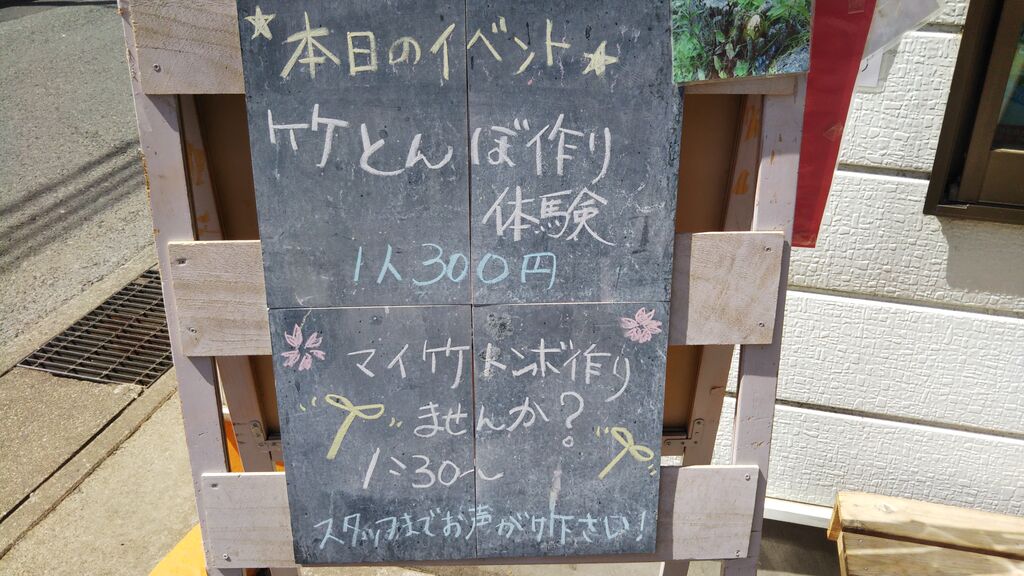 本日のイベント
竹とんぼ作り
体験
1人300円
マイ竹トンボ作り
ませんか?
1:30〜
スタッフまでお声がけ下さい!